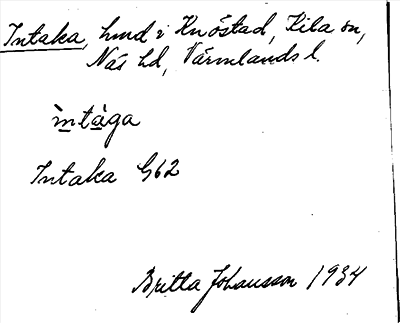 Intaka, hmd i Knöstad, Kila sn,
Näs hd, Värmlands l.
ìntàga
Intaka G62
Britta Johansson 1934